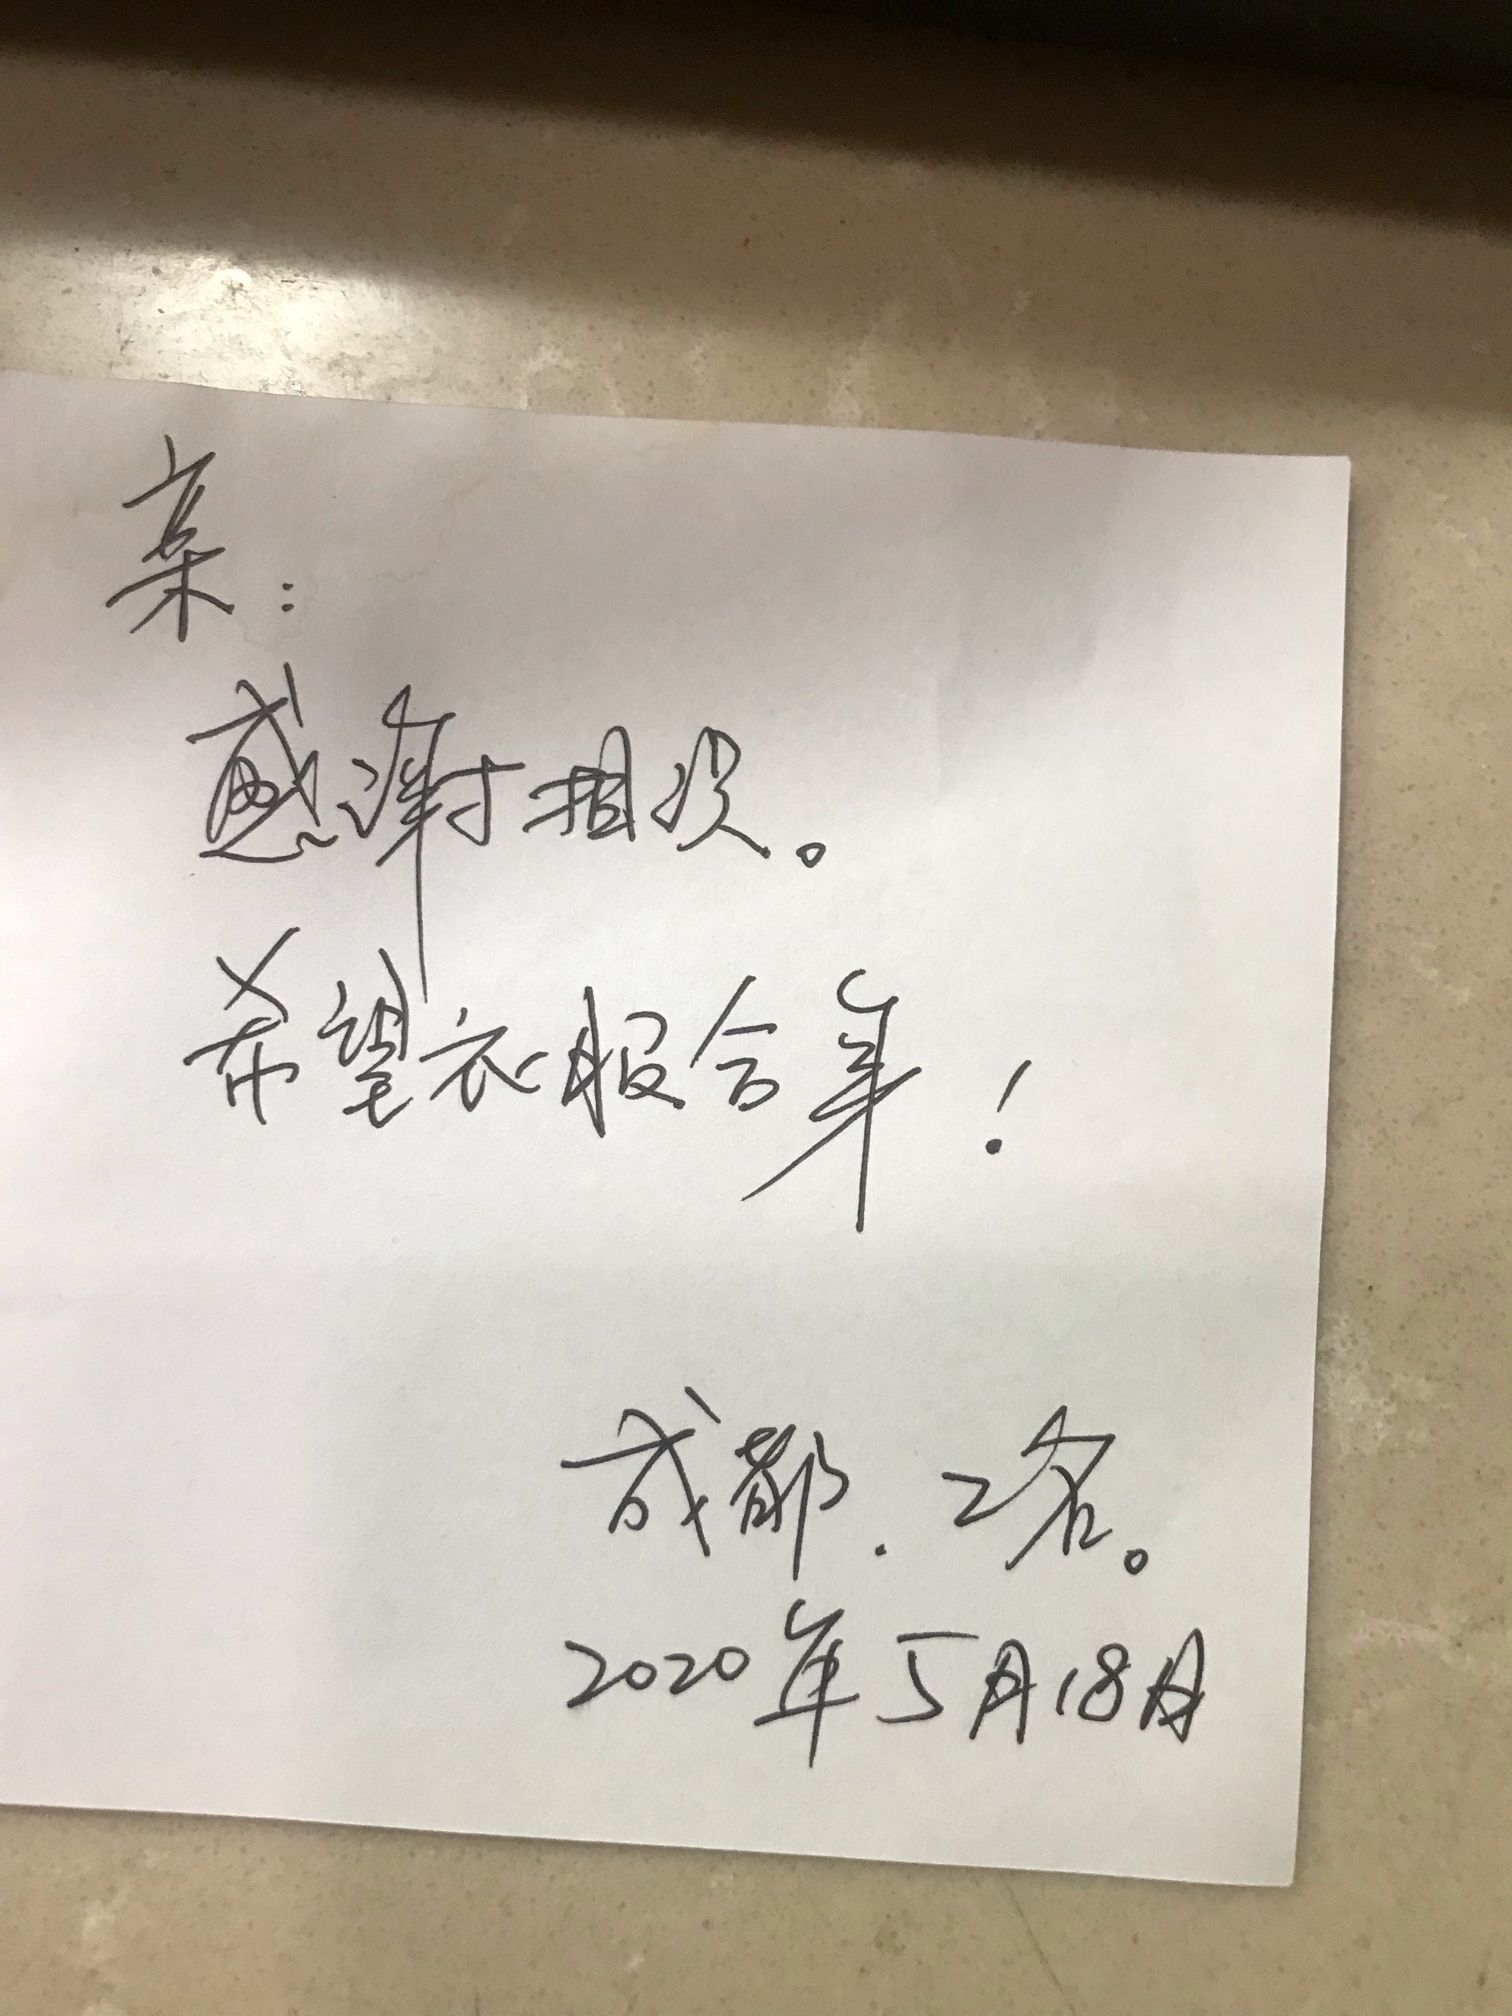 亲：
感谢相识。
希望衣服合身！
成都.二名。
2020年5月18日